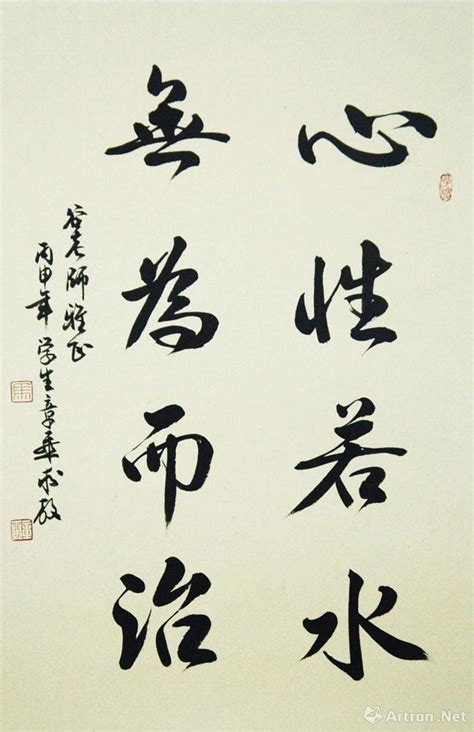 心性若水
無為而治
谷老師雅正
丙申年学生章華求教
Artron.Net